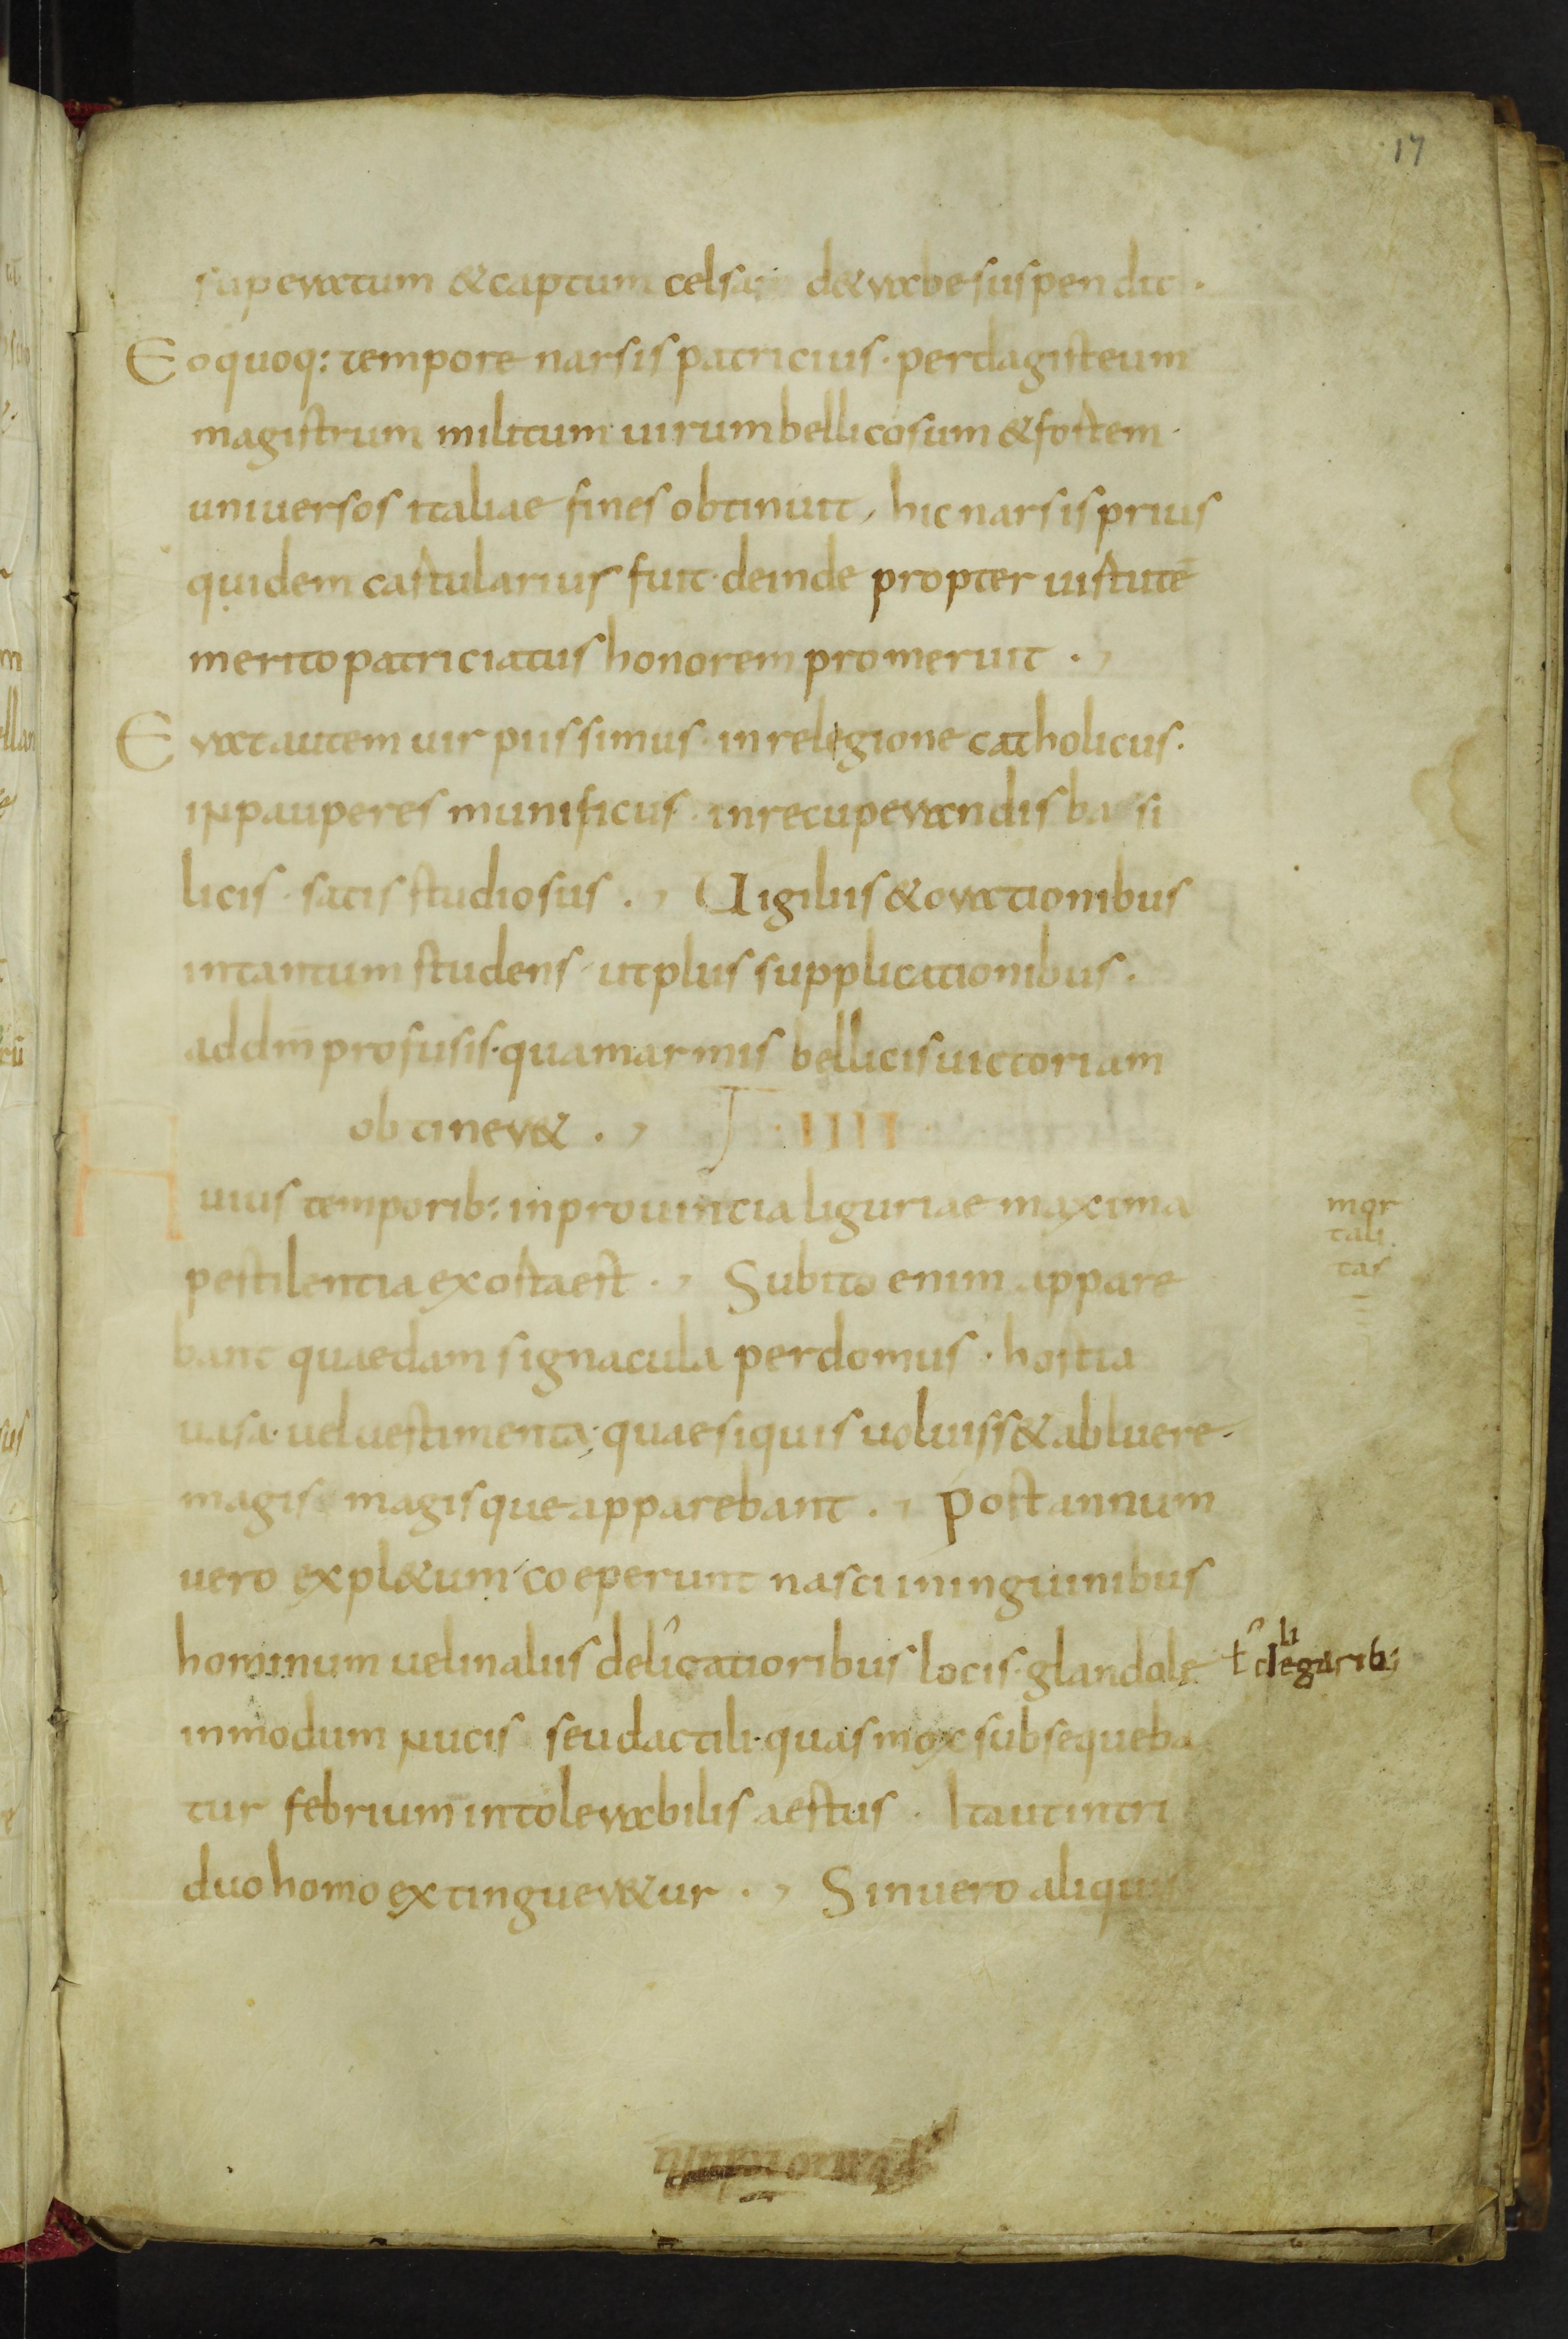 17
superatum & captum celsa de trabe suspendit ·
Eo quoq: tempore narsis patricius · per dagisteum
magistrum militum uirum bellicosum & fortem ·
universos italiae fines obtinuit, hic narsis prius
quidem cartularius fuit · deinde propter uirtutē
merito patriciatus honorem promeruit · ,
Erat autem uir piissimus · in relegione catholicus ·
in pauperes munificus · in recuperandis basi
licis · satis studiosus · , Uigiliis & orationibus
in tantum studens · ut plus supplicationibus ·
ad dm̄ profusis · quam armis bellicis uictoriam
obtiner& · , · IIII ·
Huius temporib: in prouincia liguriae maxima
pestilentia exorta est · , Subito enim appare
bant quaedam signacula per domus · hostia
uasa · uel uestimenta · quae siquis uoluiss& abluere ·
magis magisque apparebant · , Post annum
uero expl&um · coeperunt nasci in inguinibus
hominum uel in aliis delicatioribus locis · glandole
in modum nucis seu dactili · quas mox subsequeba
tur febrium intolerabilis aestus · Ita ut in tri
duo homo extinguer&ur · , Sin uero aliquis
mor
tali
tas